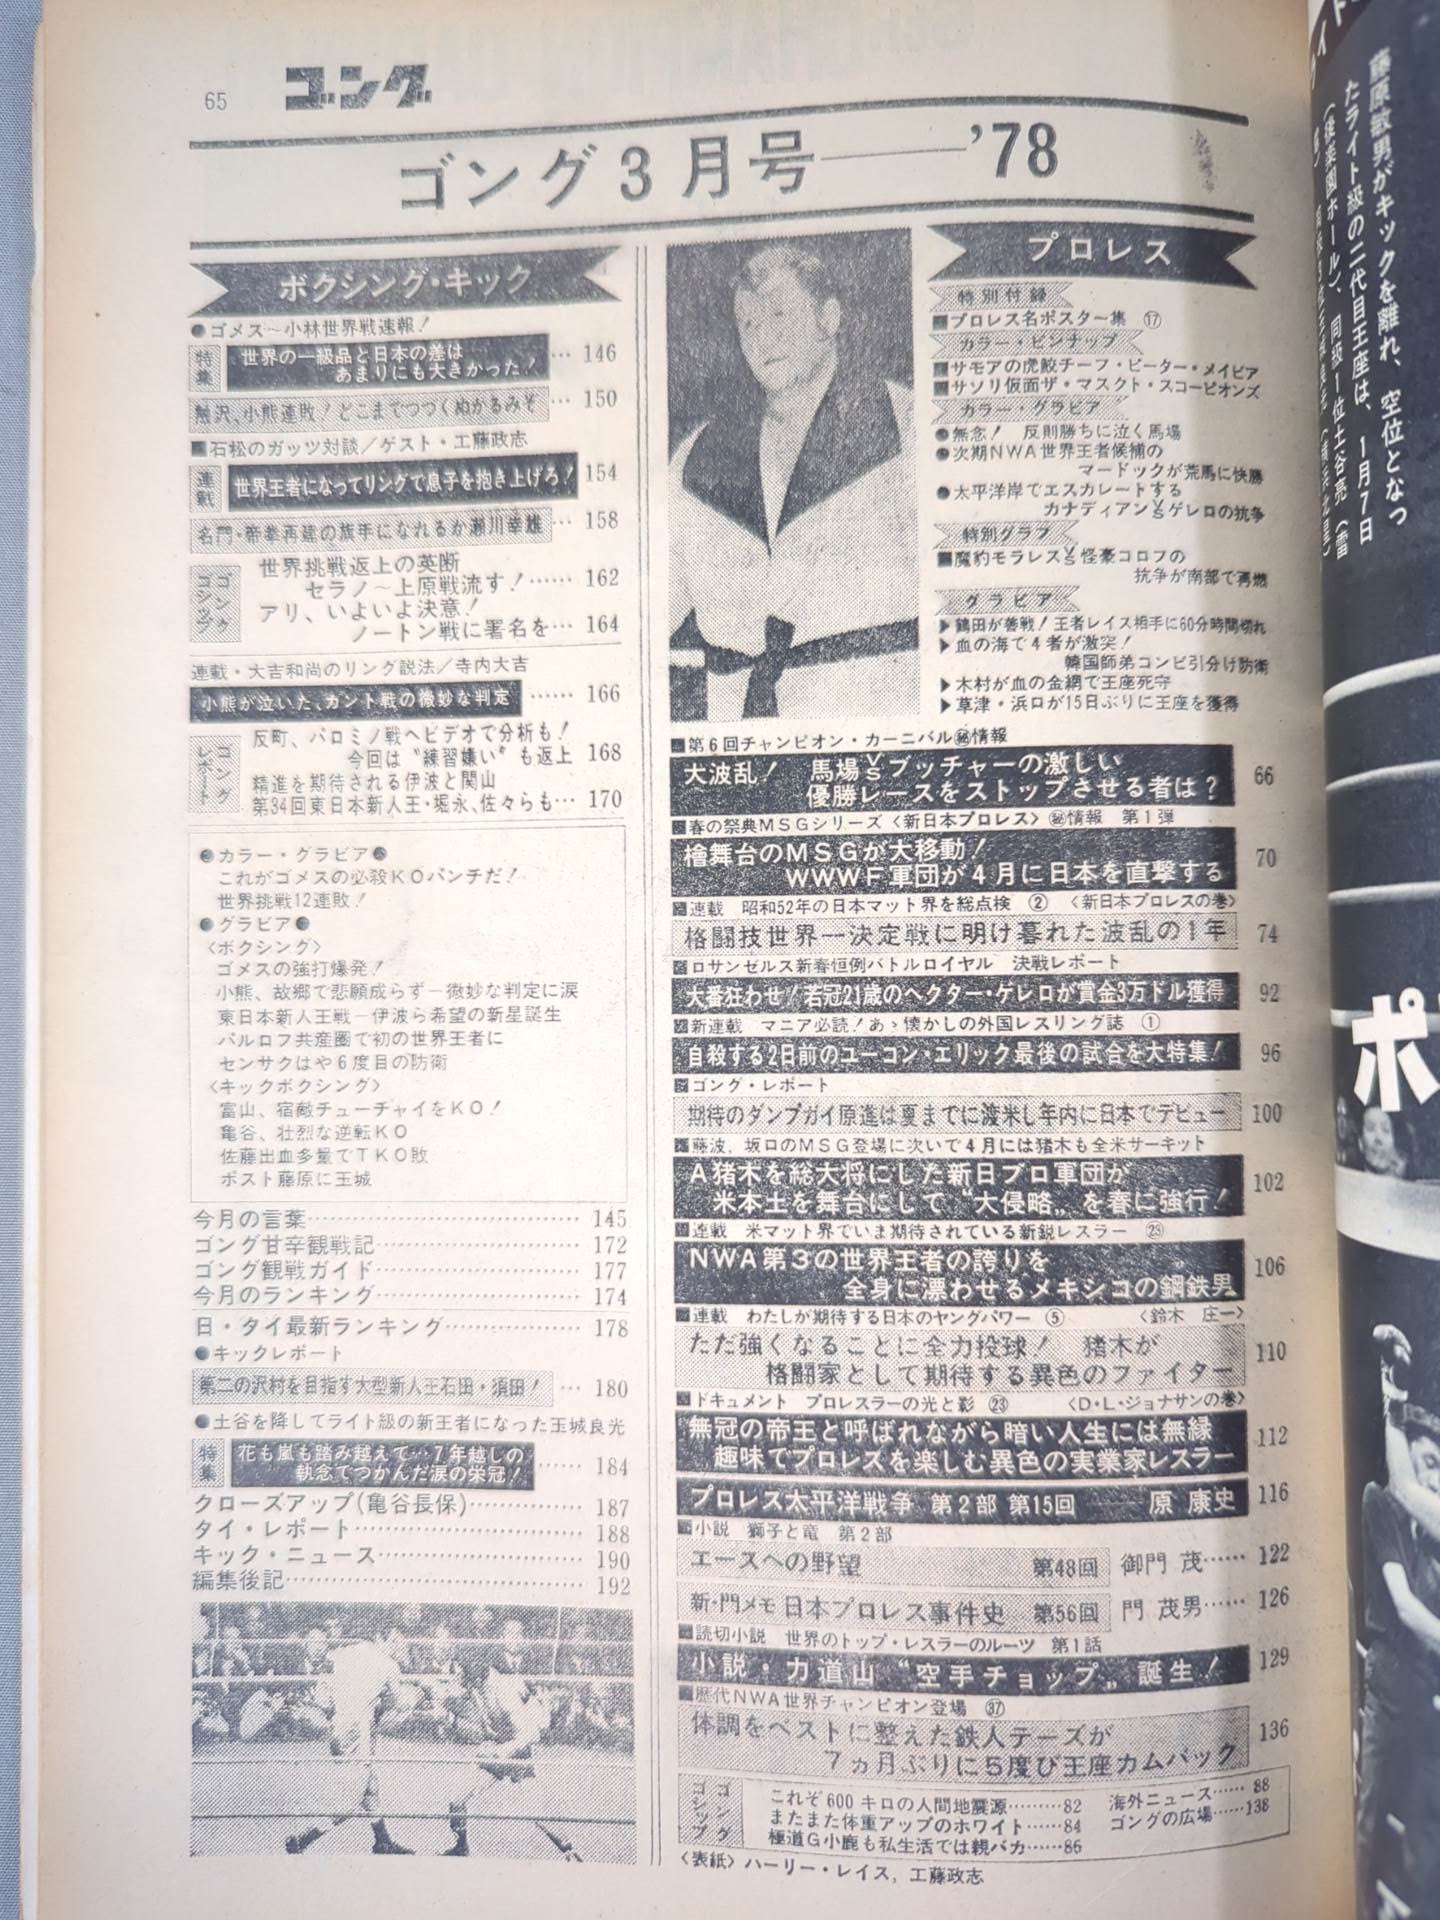 65
ゴング
ゴング3月号――'78
ボクシング・キック
●ゴメス〜小林世界戦速報!
特集
世界の一級品と日本の差は
あまりにも大きかった! … 146
触沢、小熊連敗!どこまでつづくぬかるみぞ … 150
■石松のガッツ対談/ゲスト・工藤政志
連載
世界王者になってリングで息子を抱き上げろ! 154
名門・帝拳再建の旗手になれるか瀬川幸雄 … 158
ゴングゴシップ
世界挑戦返上の英断
セラノ〜上原戦流す!…… 162
アリ、いよいよ決意!
ノートン戦に署名を… 164
連載・大吉和尚のリング説法/寺内大吉
小熊が泣いた、カント戦の微妙な判定 …… 166
ゴングレポート
反町、パロミノ戦へビデオで分析も!
今回は"練習嫌い"も返上 168
精進を期待される伊波と関山
第34回東日本新人王・堀永、佐々らも… 170
●カラー・グラビア●
これがゴメスの必殺KOパンチだ!
世界挑戦12連敗!
●グラビア●
<ボクシング>
ゴメスの強打爆発!
小熊、故郷で悲願成らず―微妙な判定に涙
東日本新人王戦―伊波ら希望の新星誕生
バルロフ共産圏で初の世界王者に
センサクはや6度目の防衛
<キックボクシング>
富山、宿敵チューチャイをKO!
亀谷、壮烈な逆転KO
佐藤出血多量でTKO敗
ポスト藤原に玉城
今月の言葉…………………………… 145
ゴング甘辛観戦記…………………… 172
ゴング観戦ガイド…………………… 177
今月のランキング…………………… 174
日・タイ最新ランキング…………… 178
●キックレポート
第二の沢村を目指す大型新人王石田・須田! … 180
●土谷を降してライト級の新王者になった玉城良光
特集
花も嵐も踏み越えて…7年越しの
執念でつかんだ涙の栄冠! …… 184
クローズアップ(亀谷長保)………… 187
タイ・レポート……………………… 188
キック・ニュース…………………… 190
編集後記……………………………… 192
プロレス
特別付録
■プロレス名ポスター集 ⑰
カラー・ピンナップ
■サモアの虎鮫チーフ・ピーター・メイビア
■サソリ仮面ザ・マスクト・スコーピオンズ
カラー・グラビア
●無念! 反則勝ちに泣く馬場
●次期NWA世界王者候補の
マードックが荒馬に快勝
●太平洋岸でエスカレートする
カナディアンVSゲレロの抗争
特別グラフ
■魔豹モラレスVS怪豪コロフの
抗争が南部で再燃
グラビア
▶鶴田が善戦!王者レイス相手に60分時間切れ
▶血の海で4者が激突!
韓国師弟コンビ引分け防衛
▶木村が血の金網で王座死守
▶草津・浜口が15日ぶりに王座を獲得
■第6回チャンピオン・カーニバル㊙情報
大波乱! 馬場VSブッチャーの激しい
優勝レースをストップさせる者は? 66
■春の祭典MSGシリーズ<新日本プロレス>㊙情報 第1弾
檜舞台のMSGが大移動!
WWWF軍団が4月に日本を直撃する 70
■連載 昭和52年の日本マット界を総点検 ② <新日本プロレスの巻>
格闘技世界一決定戦に明け暮れた波乱の1年 74
■ロサンゼルス新春恒例バトルロイヤル 決戦レポート
大番狂わせ!若冠21歳のヘクター・ゲレロが賞金3万ドル獲得 92
■新連載 マニア必読!あゝ懐かしの外国レスリング誌 ①
自殺する2日前のユーコン・エリック最後の試合を大特集! 96
■ゴング・レポート
期待のダンプガイ原進は夏までに渡米し年内に日本でデビュー 100
■藤波、坂口のMSG登場に次いで4月には猪木も全米サーキット
A猪木を総大将にした新日プロ軍団が
米本土を舞台にして"大侵略"を春に強行! 102
■連載 米マット界でいま期待されている新鋭レスラー ㉓
NWA第3の世界王者の誇りを
全身に漂わせるメキシコの鋼鉄男 106
■連載 わたしが期待する日本のヤングパワー ⑤ <鈴木 庄一>
ただ強くなることに全力投球! 猪木が
格闘家として期待する異色のファイター 110
■ドキュメント プロレスラーの光と影 ㉓ <D・L・ジョナサンの巻>
無冠の帝王と呼ばれながら暗い人生には無縁
趣味でプロレスを楽しむ異色の実業家レスラー 112
プロレス太平洋戦争 第2部 第15回 ―― 原 康史 116
■小説 獅子と竜 第2部
エースへの野望 第48回 御門 茂…… 122
新・門メモ 日本プロレス事件史 第56回 門 茂男…… 126
■読切小説 世界のトップ・レスラーのルーツ 第1話
小説・力道山"空手チョップ"誕生! 129
■歴代NWA世界チャンピオン登場 ㊲
体調をベストに整えた鉄人テーズが
7ヵ月ぶりに5度び王座カムバック 136
ゴングゴシップ
これぞ600キロの人間地震源………82
またまた体重アップのホワイト……84
極道G小鹿も私生活では親バカ……86
海外ニュース…… 88
ゴングの広場……138
<表紙>ハーリー・レイス, 工藤政志
藤原敏男がキックを離れ、空位となっ
たライト級の二代目王座は、1月7日
(後楽園ホール)、同級1位土谷亮(雷
ポ